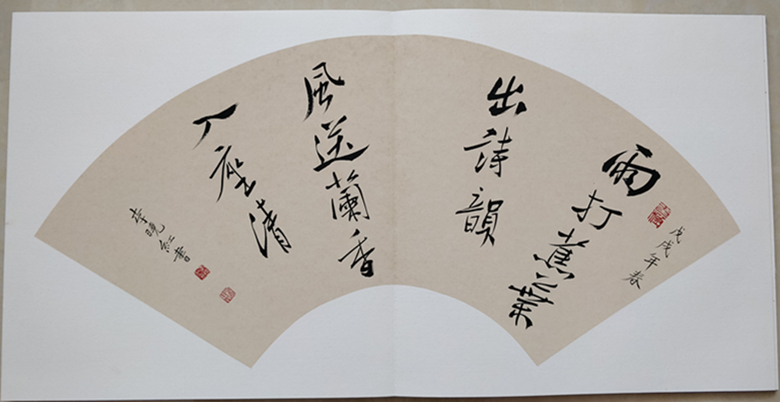 戊戌年春
雨打蕉葉
出詩韻
風送蘭香
入座清
李曉紅書